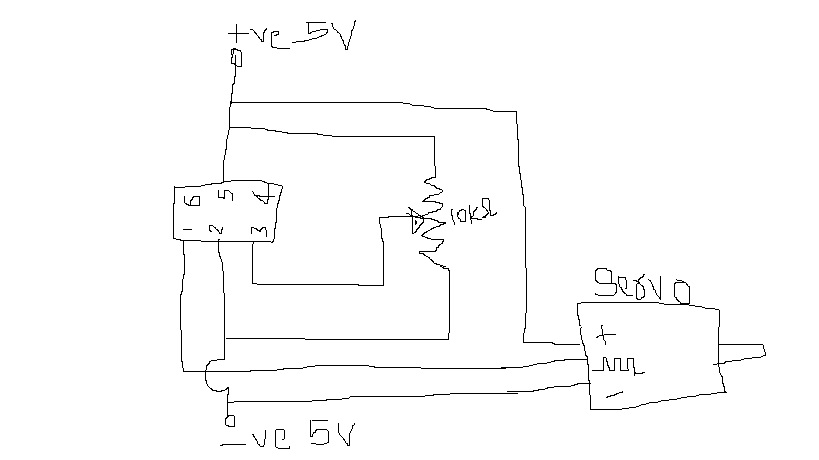 +ve 5V
6 5 4
1 2 3
10kΩ
Servo
+
-
-ve 5V